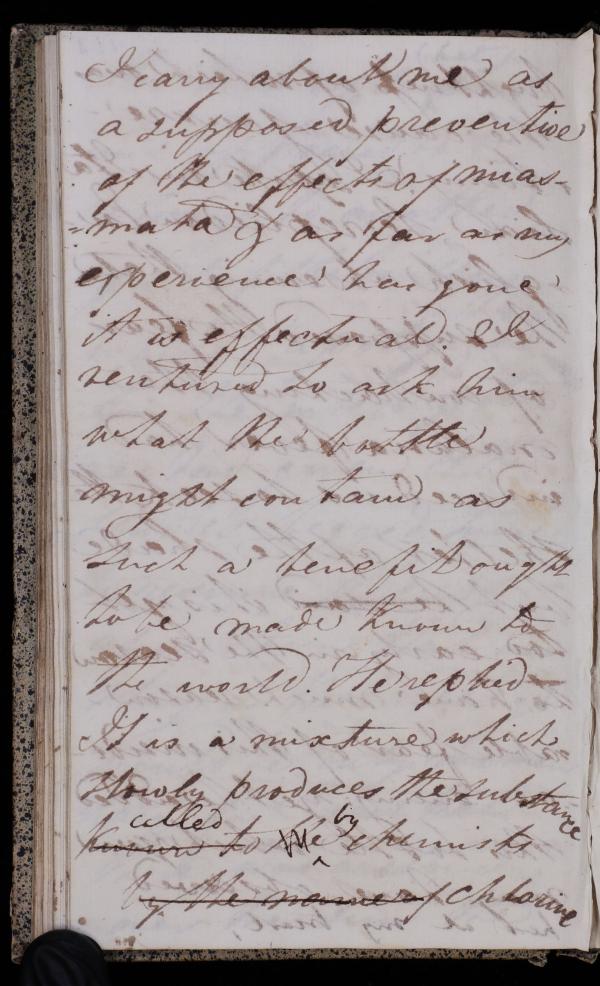 I carry about me as
a supposed preventive
of the effects of mias-
=mata & as far as my
experience has gone
it is effectual. I
ventured to ask him
what the bottle
might contain as
such a benefit ought
to be made known to
the world. He replied
It is a mixture which
slowly produces the substance
called by
known to the chemists
by the name of chlorine